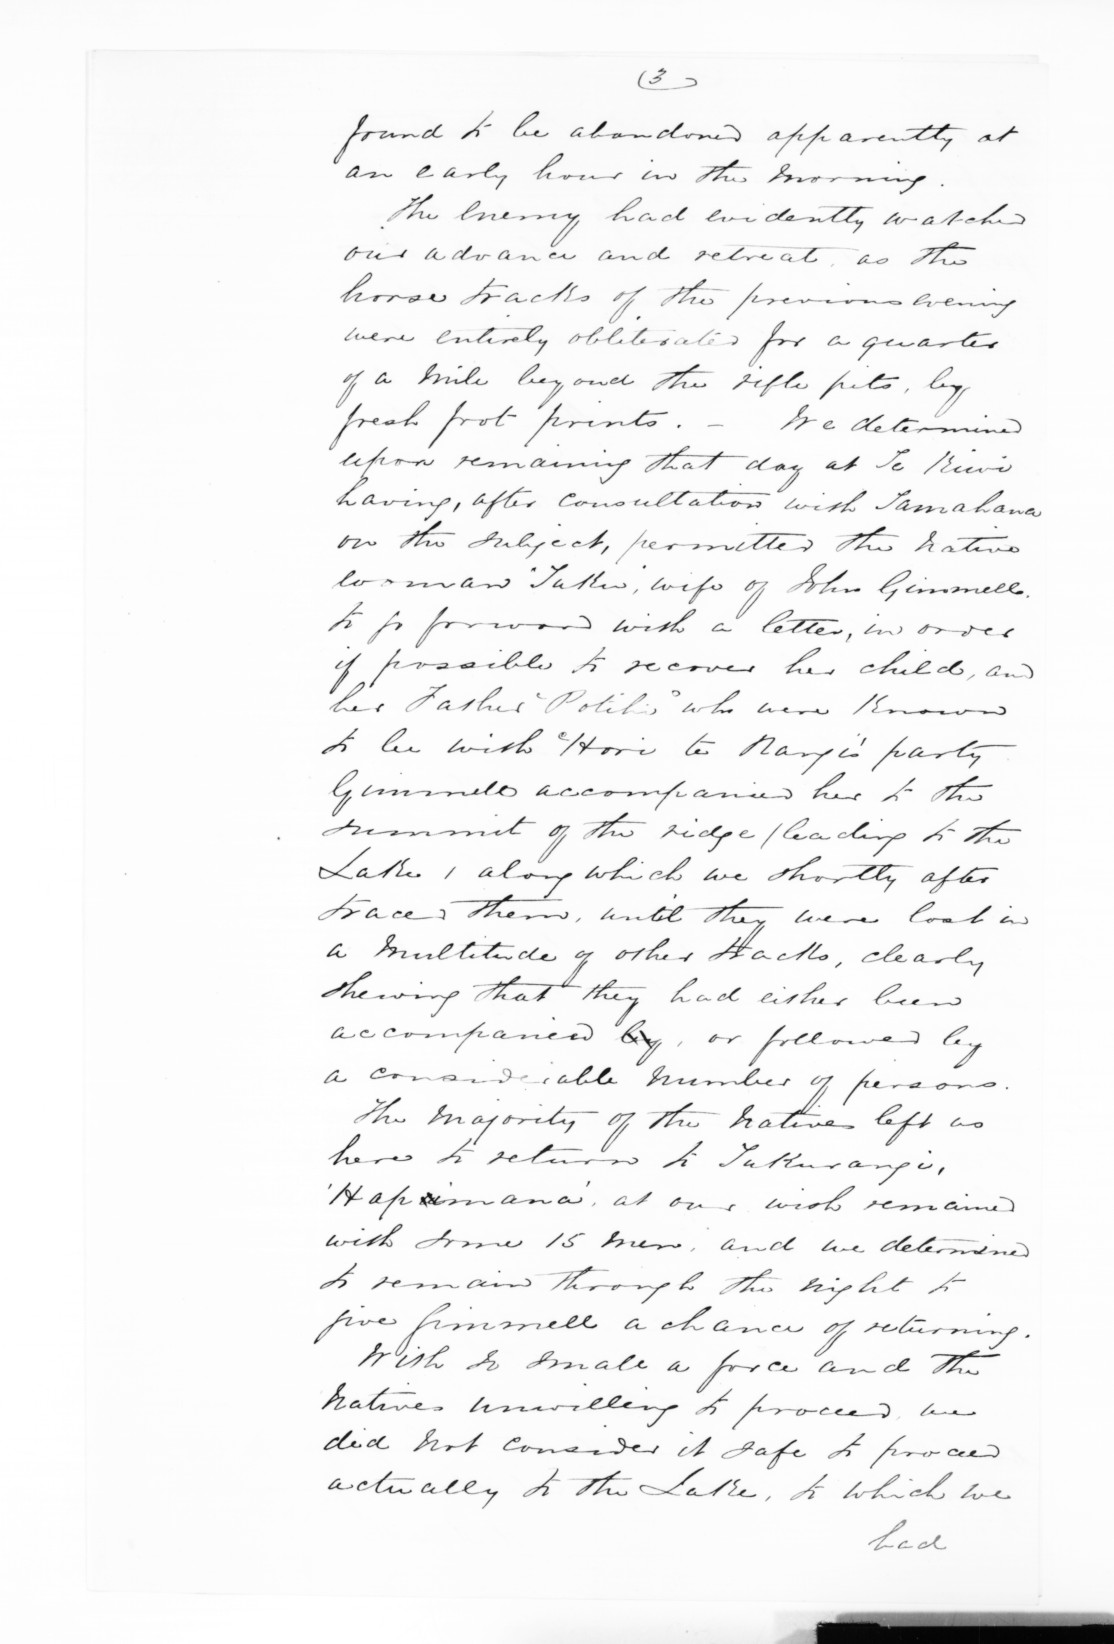 (3)
found to be abandoned apparently at
an early hour in the Morning.
The Enemy had evidently watched
our advance and retreat, as the
horse tracks of the previous evening
were entirely obliterated for a quarter
of a Mile beyond the rifle pits, by
fresh foot prints. - We determined
upon remaining that day at Te Kiwi
having, after consultation with Tamahana
on the subject, permitted the Native
woman "Take", wife of John Gimmell.
to go forward with a letter, in order
if possible to recover her child, and
her Father "Potiki" who were Known
to be with "Hori te Rangi's party
Gimmell accompanied her to the
summit of the ridge (leading to the
Lake) along which we shortly after
traced them, until they were lost in
a Multitude of other tracks, clearly
shewing that they had either been
accompanied by, or followed by
a considerable Number of persons.
The Majority of the Natives left us
here to return to Tukurangi,
'Hapimana', at our wish remained
with some 15 Men, and we determined
to remain through the Night to
give Gimmell a chance of returning.
With so small a force and the
Natives unwilling to proceed, we
did Not consider it safe to proceed
actually to the Lake, to which we
had